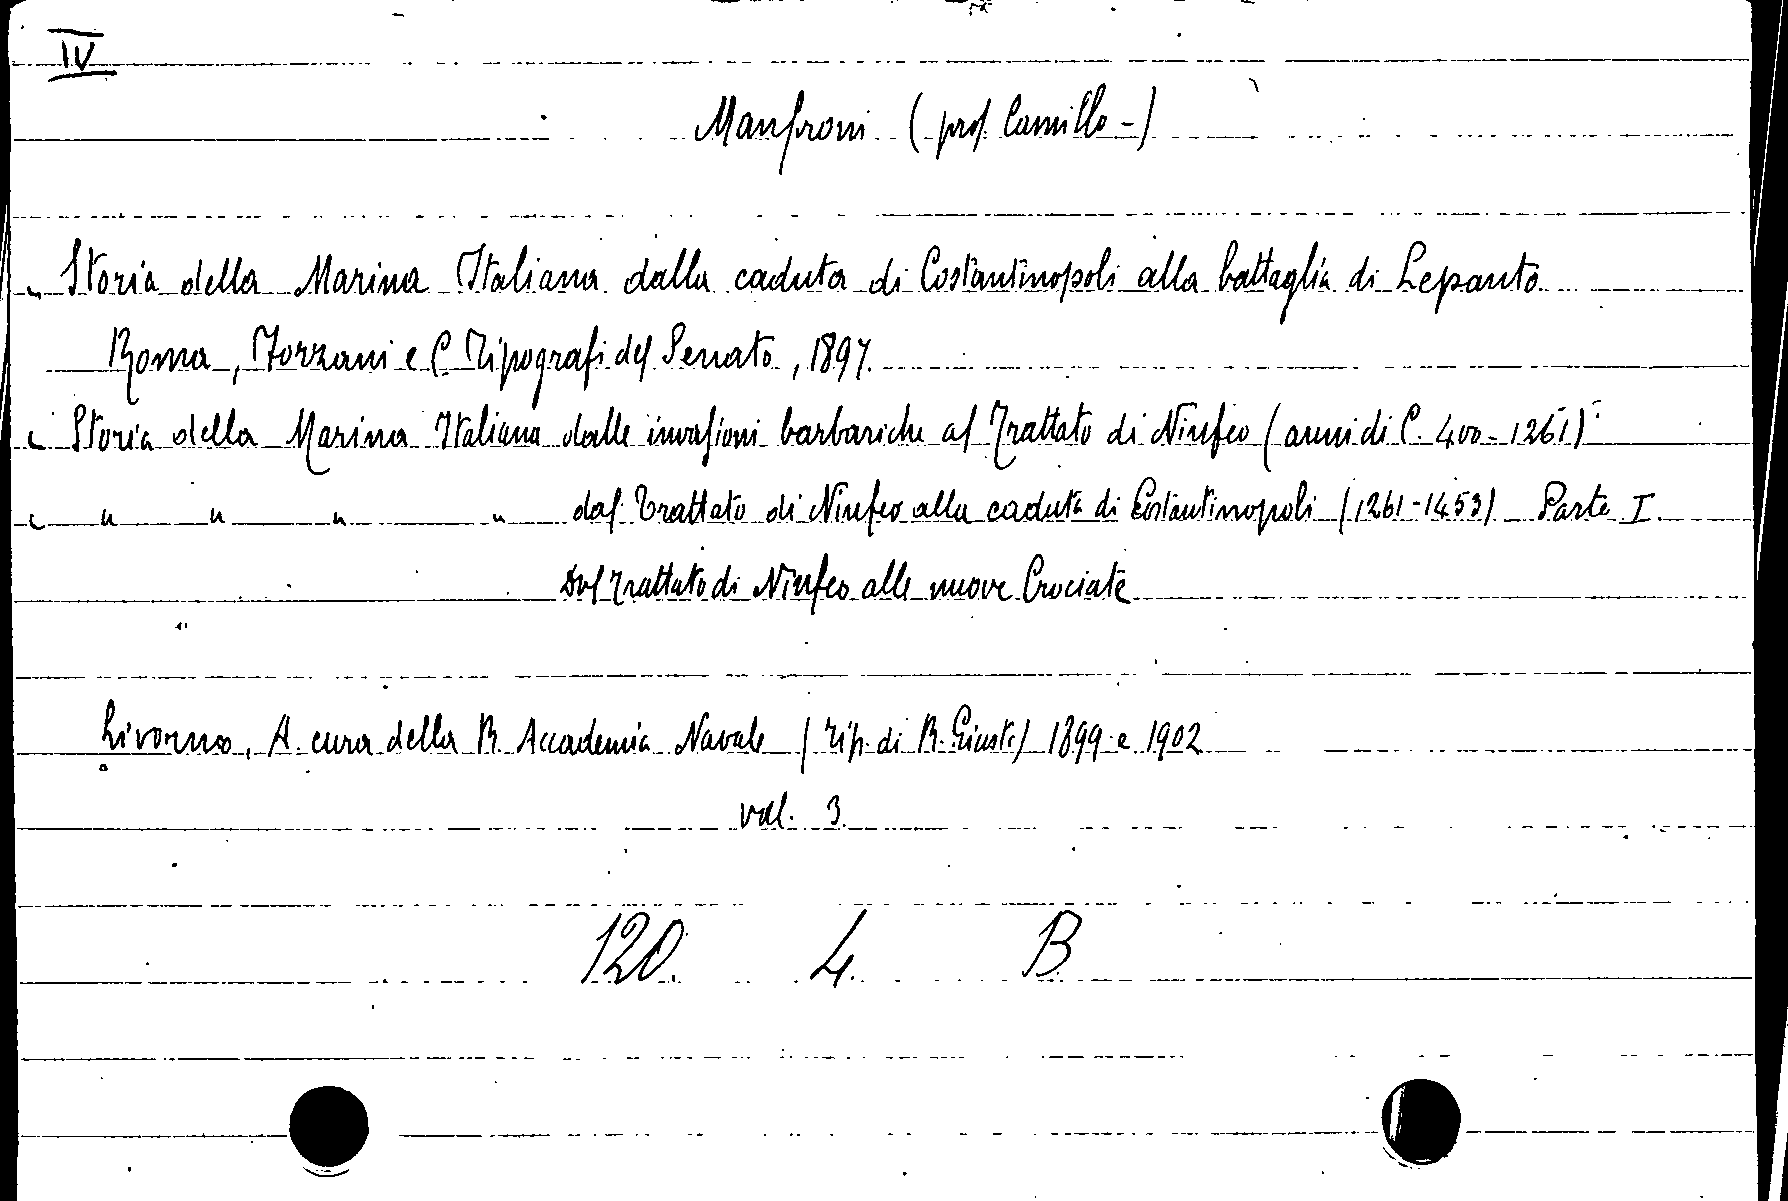 IV
Manfroni (prof. Camillo -)
" Storia della Marina Italiana dalla caduta di Costantinopoli alla battaglia di Lepanto
Roma, Forzani e C. Tipografi del Senato, 1897.
" Storia della Marina Italiana dalle invasioni barbariche al Trattato di Ninfeo (anni di C. 400-1261)
" " " " " dal Trattato di Ninfeo alla caduta di Costantinopoli (1261-1453) Parte I.
Dal Trattato di Ninfeo alle nuove Crociate
Livorno, A cura della R. Accademia Navale (Tip. di R. Giusti) 1899 e 1902
vol. 3.
120. 4. B